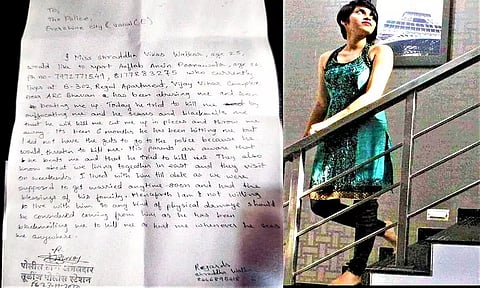 To,
The Police,
I Miss Shraddha Vikas Walkar, age 25,
would like to report Aftab Amin Poonawala, age
who currently
lives at B-302, Regal Apartment, Vijay Vihar Complex
near ARC has been abusing me and
beating me up. Today he tried to kill me by
suffocating me and he scares and blackmails me
that he will kill me, cut me up in pieces and throw me
away. Its been 6 months he has been hitting me but
I did not have the guts to go to the police because he
would threaten to kill me. His parents are aware that
he beats me and that he tried to kill me. They also
know about we living together in and they visit
on weekends. I lived with him till date as we were
supposed to get married anytime soon and had the
blessings of his family. Henceforth I am not willing
to live with him so any kind of physical damage should
be considered coming from him as he has been
blackmailing me to kill me or hurt me whenever he sees
me anywhere.
Regards
Shraddha
पोलीस ठाणे अंमलदार
तुळींज पोलीस स्टेशन